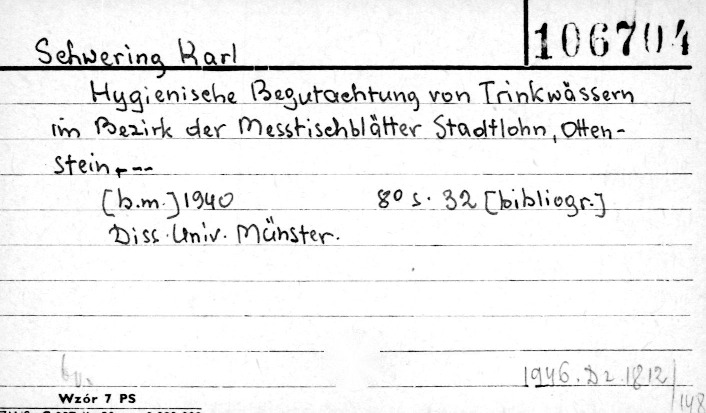 106704
Schwering Karl
Hygienische Begutachtung von Trinkwässern
im Bezirk der Messtischblätter Stadtlohn, Otten-
stein,---
[b.m.] 1940 8° s. 32 [bibliogr.]
Diss. Univ. Münster.
1946. Dz. 1812/148
Wzór 7 PS